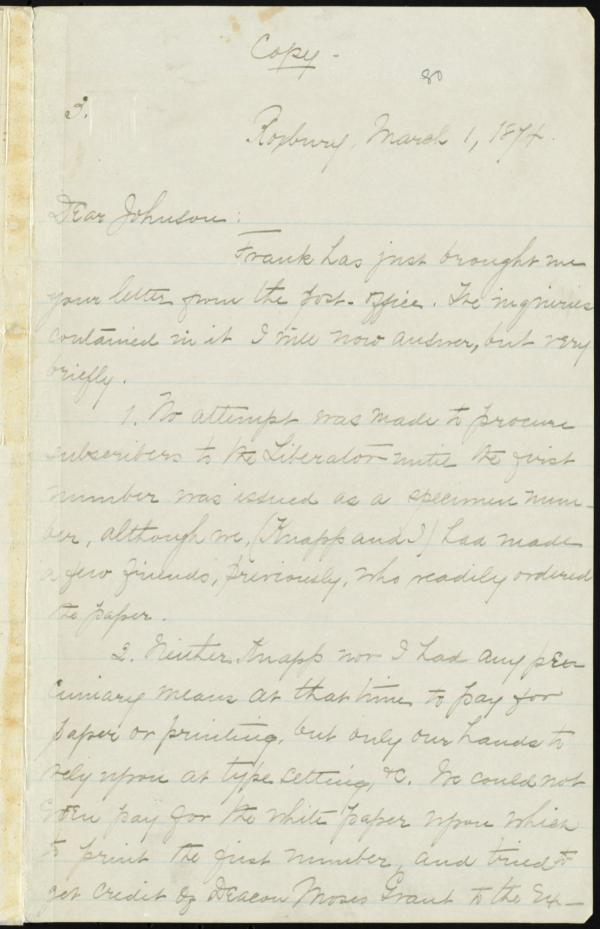 Copy -
80
3.
Roxbury, March 1, 1874.
Dear Johnson:
Frank has just brought me
your letter from the post-office. The inquiries
contained in it I will now answer, but very
briefly.
1. No attempt was made to procure
subscribers to the Liberator until the first
number was issued as a specimen num-
ber, although we, (Knapp and I) had made
a few friends, previously, who readily ordered
the paper.
2. Neither Knapp nor I had any pecu
cuniary means at that time to pay for
paper or printing, but only our hands to
rely upon at type setting, &c. We could not
even pay for the white paper upon which
to print the first number, and tried to
get credit of Deacon Moses Grant to the ex-